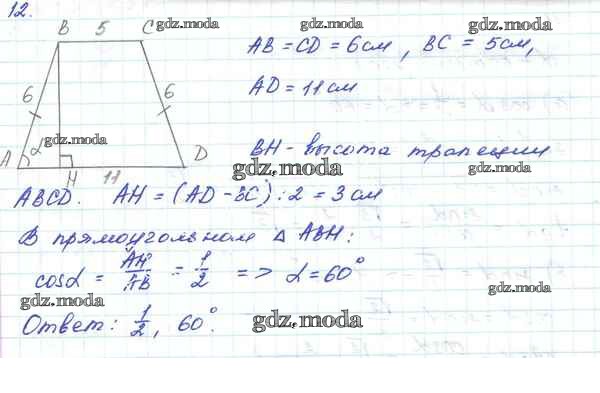 12.
B 5 C gdz.moda gdz.moda gdz.moda
AB = CD = 6 см, BC = 5 см,
6 6
AD = 11 см
gdz.moda
α
A H 11 D
BH - высота трапеции
gdz.moda
ABCD. AH = (AD - BC) : 2 = 3 см
gdz.moda gdz.moda
В прямоугольном △ ABH:
cos α = AH/AB = 1/2 => α = 60°
gdz.moda gdz.moda
Ответ: 1/2, 60°.
gdz.moda